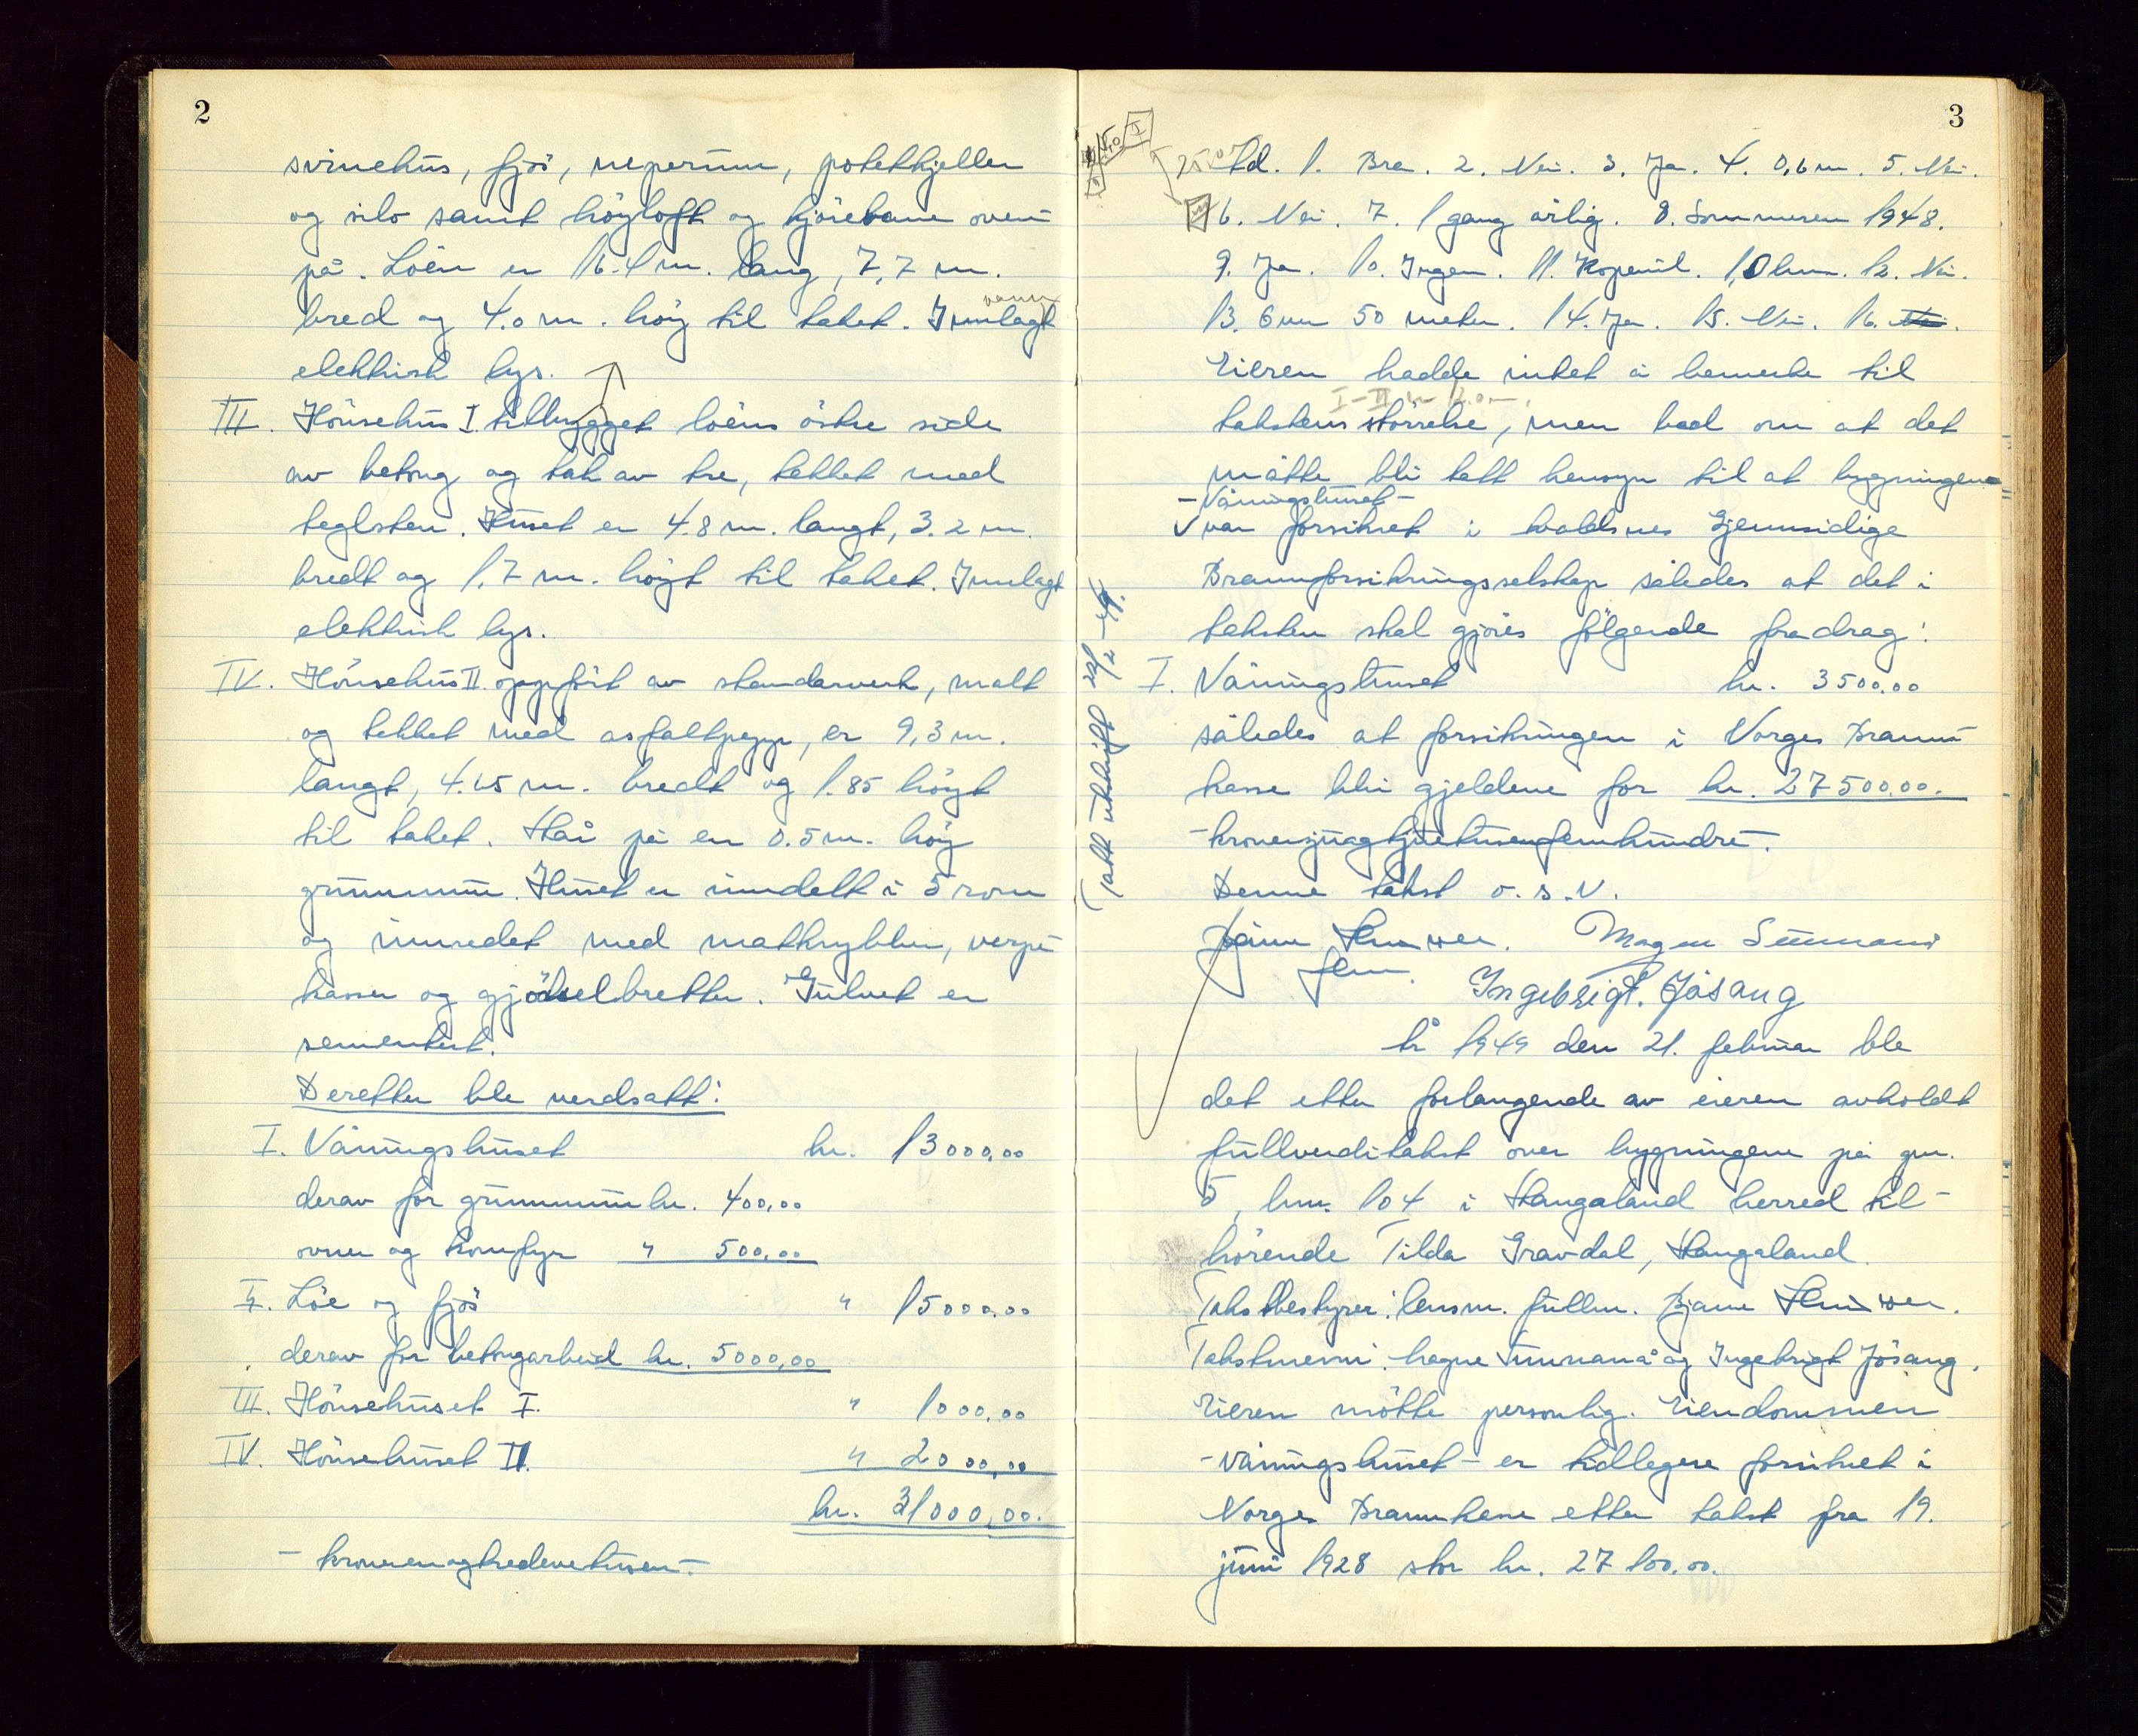 2
svinehus, fjös, neperum, potetkjeller
og silo samt höyloft og kjörebane oven
på. Löen er 16.4 m. lang, 7,7 m.
vann
bred og 4.0 m. höy til taket. Innlagt
elektrisk lys.
III. Hönsehus I. tilbygget löens östre side
av betong og tak av tre, tekket med
teglsten. Huset er 4.8 m. langt, 3.2 m.
bredt og 1.7 m. höyt til taket. Innlagt
elektrisk lys.
IV. Hönsehus II. oppfört av standarverk, malt
og tekket med asfaltpapp, er 9,3 m.
langt, 4.65 m. bredt og 1.85 höyt
til taket. Står på en 0.5 m. höy
grunnmur. Huset er inndelt i 5 rom
og innredet med matkrybber, verpe
kasser og gjödselbretter. Gulvet er
sementert.
Deretter ble verdsatt:
I. Våningshuset kr. 13000,00
derav for grunnmur kr. 400,00
ovner og komfyr " 500,00
II. Löe og fjös " 15000,00
derav for betongarbeid kr. 5000,00
III. Hönsehuset I. " 1000,00
IV. Hönsehuset II. " 2000,00
kr. 31000,00.
- kronerenogtredevetusen -
3
td. 1. Bra. 2. Nei. 3. Ja. 4. 0,6 m. 5. Nei.
6. Nei. 7. 1 gang årlig. 8. Sommeren 1948.
9. Ja. 10. Ingen. 11. Kopervik. 10 km. 12. Nei.
13. 6 mm 50 meter. 14. Ja. 15. Nei. 16. Nei.
Eieren hadde intet å bemerke til
I-II
takstens störrelse, men bad om at det
måtte bli tatt hensyn til at bygningen
- Våningshuset -
var forsikret i Avaldsnes Gjensidige
Brannforsikringsselskap således at det i
taksten skal gjöres fölgende fradrag:
I. Våningshuset kr. 3500,00
således at forsikringen i Norges Brann-
kasse blir gjeldene for kr. 27500,00.
- kronersjuogtjuetusenfemhundre -.
Denne takst o.s.v.
Magne Sunnanå
Ingebrigt. Jåsang
År 1949 den 21. februar ble
det etter forlangende av eieren avholdt
fullverditakst over bygningene på gnr.
5, bnr. 104 i Stangaland herred til-
hörende Tilda Gravdal, Stangaland.
Takstbestyrer: lensm. fullm. Bjarne
Takstmenn: Magne Sunnanå og Ingebrigt Jösang.
Eieren mötte personlig. Eiendommen
- våningshuset - er tidlegere forsikret i
Norges Brannkasse etter takst fra 19.
juni 1928 stor kr. 27100.00.